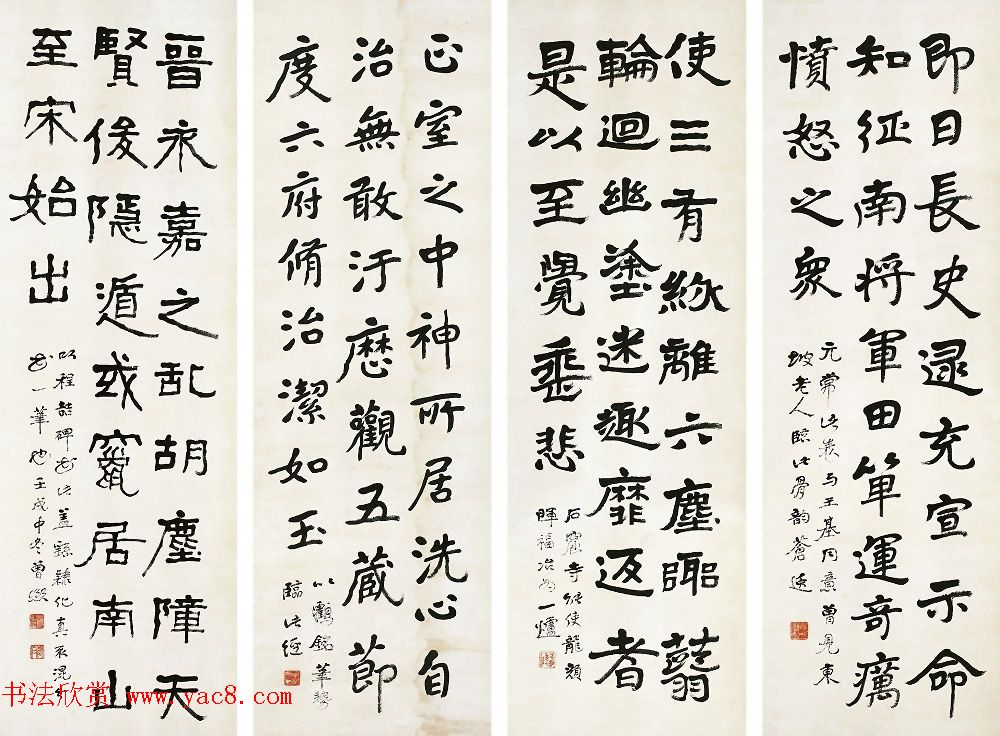 即日長史逯充宣示命
知征南将軍田單運奇厲
憤怒之衆
元常此表与王基同意曽見東
坡老人臨此骨韵蒼逸
使三有紛離六塵鄙蓊
輪迴幽塗迷趣靡返者
是以至覺垂悲
石窟寺能使龍顔
暉福冶為一爐
正室之中神所居洗心自
治無敢汙歷觀五藏節
度六府脩治潔如玉
以鶴銘筆勢
臨此經
晉永嘉之乱胡塵障天
賢俊隱遁或竄居南山
至宋始出
以程喆碑書此蓋繇隸化真
書一筆也壬戌中冬曾熙
书法欣赏 www.yac8.com